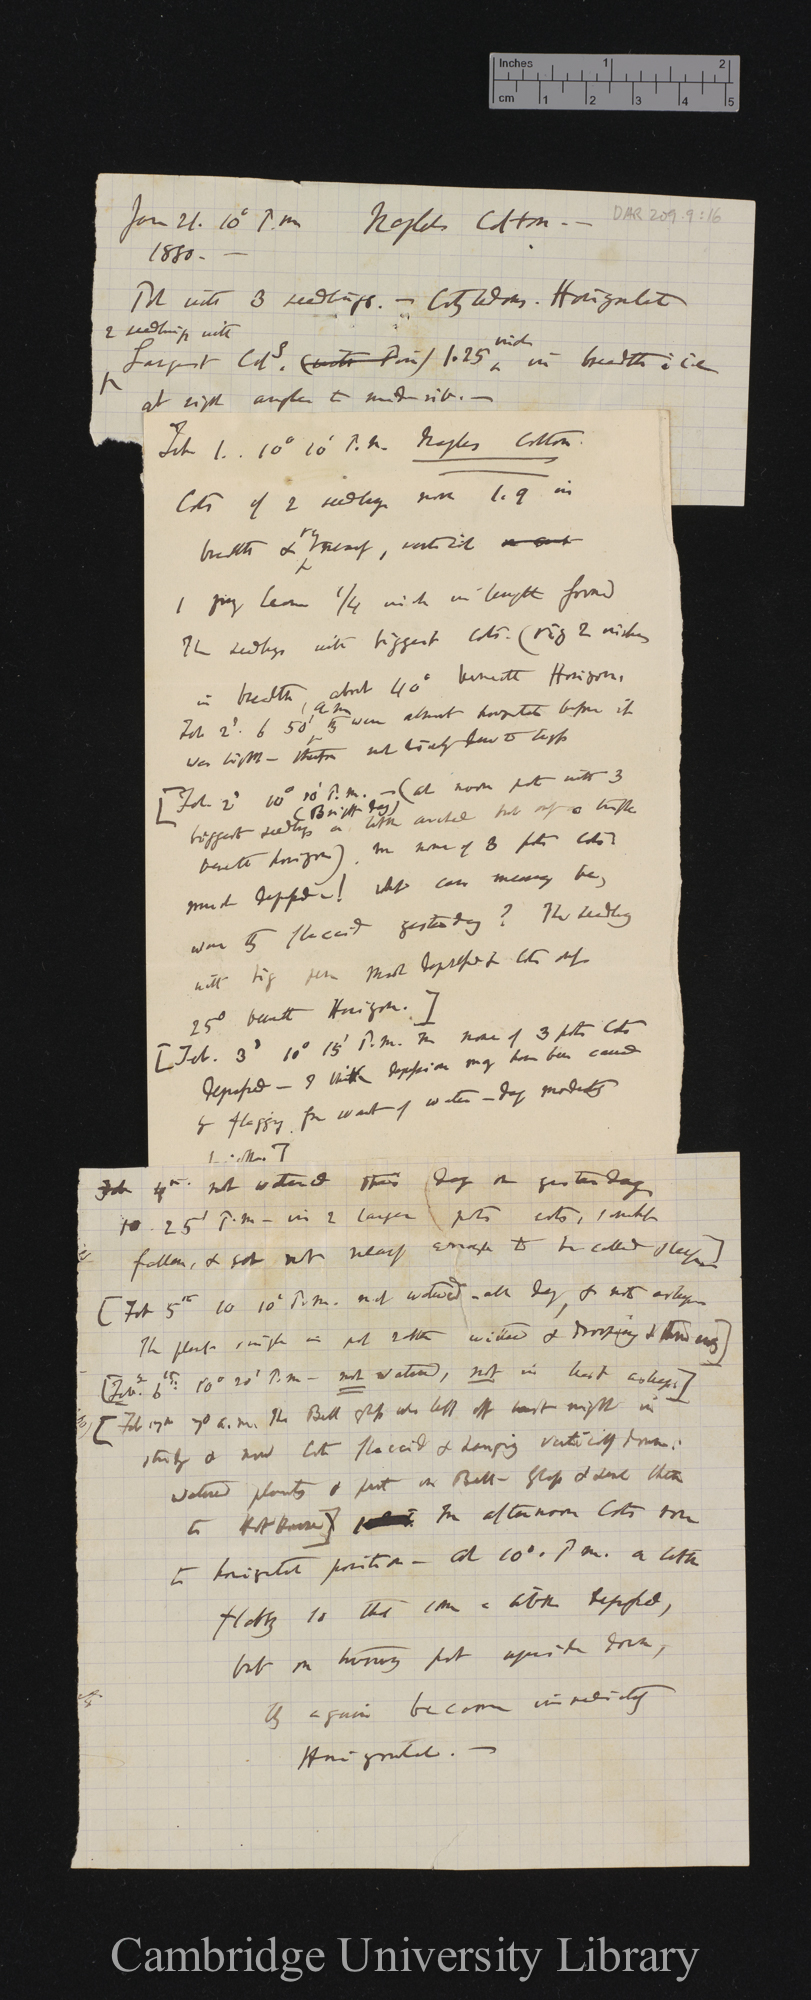 Inches 1 2
cm 1 2 3 4 5
DAR 209.9:16
Jan 21. 10° P.m Naples Cotton. —
1880. —
Pot with 3 seedlings. — Cotyledons. Horizontal
2 seedlings with
Largest Cots. (with Pin) 1.25 inch in breadth i.e
at right angles to mid-rib. —
Feb 1. . 10° 10' P.m. Naples Cotton.
Cots of 2 seedlings now 1.9 in
breadth & , vertical
1 leaf 1/4 inch in length found
The seedlings with biggest cots. (viz 2 inches
in breadth, about 40° beneath Horizon.
Feb 2d. 6° 50' a m were almost horizontal before it
was light — therefore not likely due to light
[Feb. 2d 10° 10' P.m. — (at noon pots with 3
(Bright day)
biggest seedlings a little but only a trifle
beneath horizon). in none of 3 pots Cots
much depressed! What can meaning be,
were they flaccid yesterday? The seedling
with big most depressed & cots only
25° beneath Horizon. ]
[Feb. 3d 10° 15' P.m. In none of 3 pots Cots
depressed — I think depression may have been caused
by flagging from want of water — day moderately
Feb 4th. not watered this day or yesterday
10. 25' P.m — in 2 larger pots cots, 1 with
fallen, & but not nearly enough to be called sleeping]
[Feb 5th 10 10' P.m. not watered all day, & not asleep
The plant single in pot rather wilted & drooping & ]
[Feb. 6th. 10° 20' P.m — not watered, not in least asleep.]
[Feb 7th 7° a.m. The Bell glass was left off last night in
study & now Cots flaccid & hanging vertically down:
watered plants & put on Bell-glass & sent them
to Hot House] In afternoon Cots rose
to horizontal position — at 10°. P m. a little
flabby so that some a little depressed,
but on turning pot upside down,
they again become immediately
Horizontal. —
Cambridge University Library